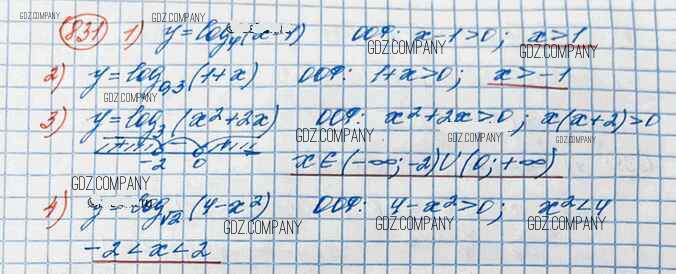 GDZ.COMPANY GDZ.COMPANY
831 1) y = log₄(x-1) ООФ: x-1>0; x>1
GDZ.COMPANY GDZ.COMPANY
2) y = log₀,₃(1+x) ООФ: 1+x>0; x>-1
GDZ.COMPANY
3) y = log₃(x²+2x) ООФ: x²+2x>0; x(x+2)>0
GDZ.COMPANY GDZ.COMPANY GDZ.COMPANY
-2 0 x∈(-∞;-2)∪(0;+∞)
GDZ.COMPANY
4) y = log√₂(4-x²) ООФ: 4-x²>0; x²<4
GDZ.COMPANY GDZ.COMPANY GDZ.COMPANY
-2<x<2